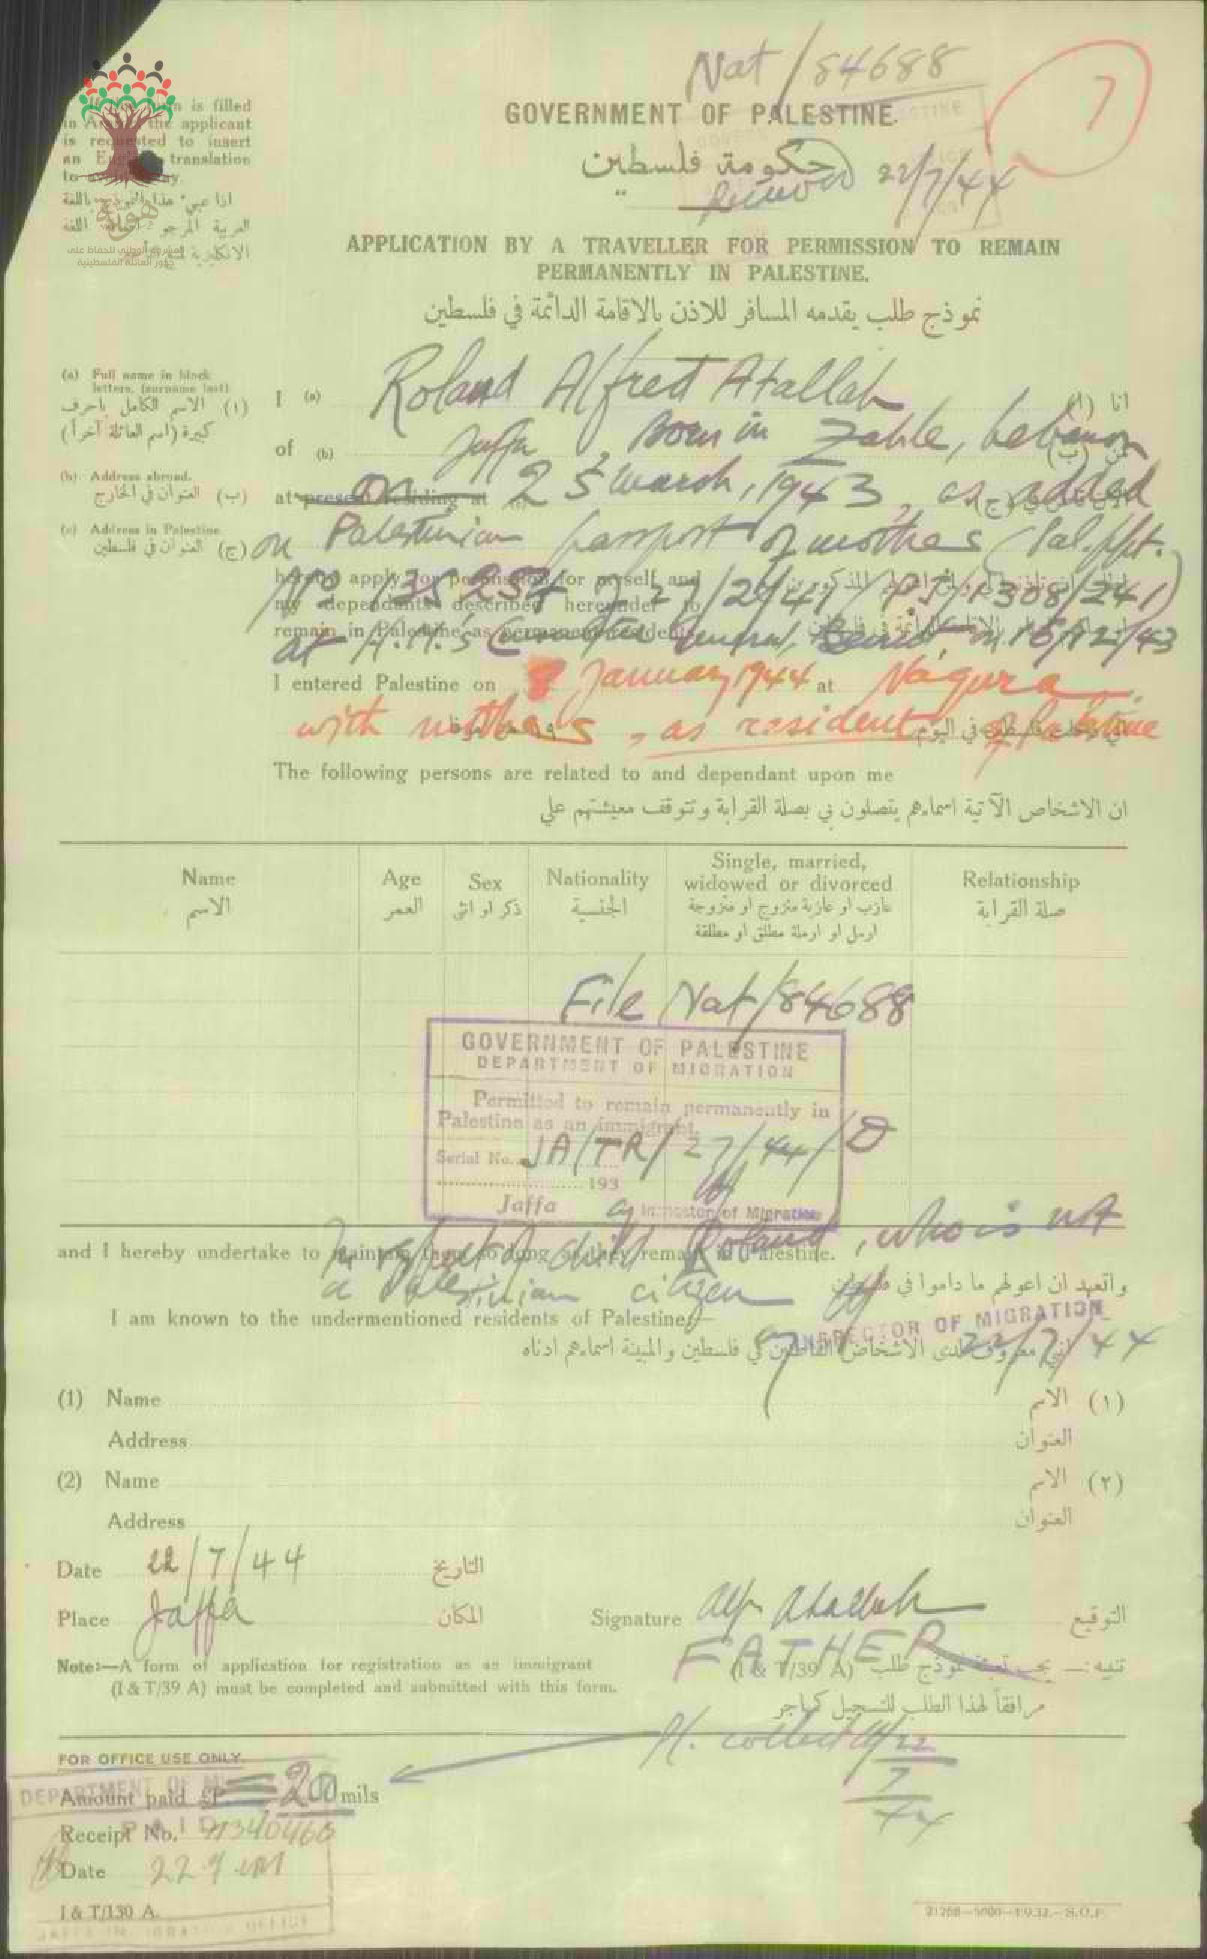 Nat/84688
7
GOVERNMENT OF PALESTINE.
حكومة فلسطين
Received 22/7/44
If this form is filled
in Arabic the applicant
is requested to insert
an English translation
اذا عبىء هذا النموذج باللغة
العربية المرجو اضافة اللغة
الانكليزية
هوية
جذور العائلة الفلسطينية
APPLICATION BY A TRAVELLER FOR PERMISSION TO REMAIN
PERMANENTLY IN PALESTINE.
نموذج طلب يقدمه المسافر للاذن بالاقامة الدائمة في فلسطين
(a) Full name in block
letters, (surname last)
(ا) الاسم الكامل باحرف
كبيرة (اسم العائلة آخراً)
(b) Address abroad.
(ب) العنوان في الخارج
(c) Address in Palestine
(ج) العنوان في فلسطين
I (a) Roland Alfred Atallah انا (ا)
of (b) Jaffa, Born in Zahle, Lebanon
at present residing at on 25 March, 1943, as added
on Palestinian passport of mother (Pal. ppt.
hereby apply for permission for myself and
No 135254 of 27/2/41 (PJ/1308/241)
my dependants described hereunder to
remain in Palestine as permanent residents
at H.M's Consulate General, Beirut, on 15/12/43
I entered Palestine on 8 January 1944 at Naqura
with mother, as resident of Palestine
The following persons are related to and dependant upon me
ان الاشخاص الآتية اسماءهم يتصلون بي بصلة القرابة وتتوقف معيشتهم علي
Name Age Sex Nationality Single, married, widowed or divorced Relationship
الاسم العمر ذكر او انثى الجنسية عازب او عازبة متزوج او متزوجة ارمل او ارملة مطلق او مطلقة صلة القرابة
File Nat/84688
GOVERNMENT OF PALESTINE
DEPARTMENT OF MIGRATION
Permitted to remain permanently in
Palestine as an immigrant.
Serial No. JA/TR/27/44/D
193
Jaffa Inspector of Migration
and I hereby undertake to maintain them so long as they remain in Palestine.
In respect of child Roland, who is not
a Palestinian citizen
واتعهد ان اعولهم ما داموا في فلسطين
I am known to the undermentioned residents of Palestine:—
INSPECTOR OF MIGRATION
22/7/44
اني معروف لدى الاشخاص القاطنين في فلسطين والمبينة اسماءهم ادناه
(1) Name الاسم (١)
Address العنوان
(2) Name الاسم (٢)
Address العنوان
Date 22/7/44 التاريخ
Place Jaffa المكان
Signature Alf Atallah التوقيع
FATHER
Note:—A form of application for registration as an immigrant
(I & T/39 A) must be completed and submitted with this form.
تنبيه:— يجب تعبئة نموذج طلب (I & T/39 A)
مرافقاً لهذا الطلب للتسجيل كمهاجر
Pl. collect 22/7/44
FOR OFFICE USE ONLY.
DEPARTMENT OF MIGRATION
Amount paid £P. 200 mils
PAID
Receipt No. 11340460
Date 22.7.
I & T/130 A.
JAFFA IMMIGRATION OFFICE
21268—5000—1.9.32.—S.O.P.